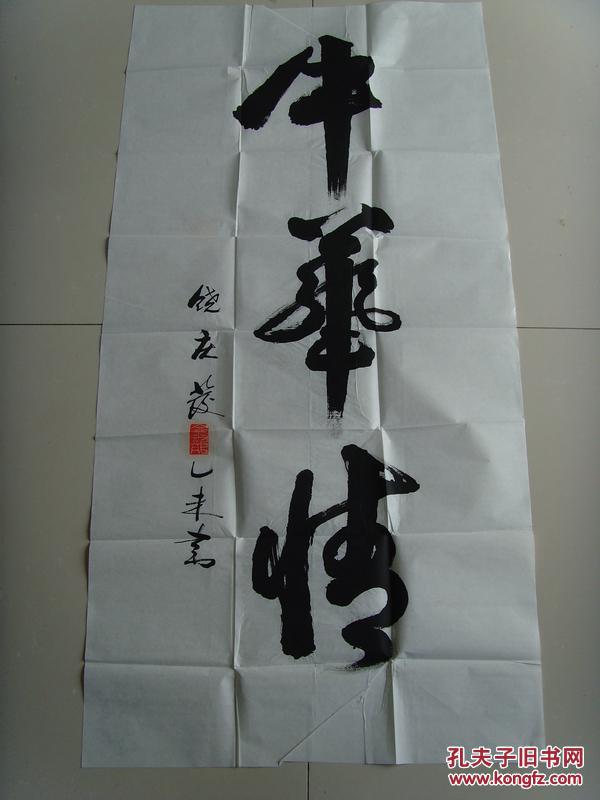 中華情
饶庆发
乙未
孔夫子旧书网
www.kongfz.com